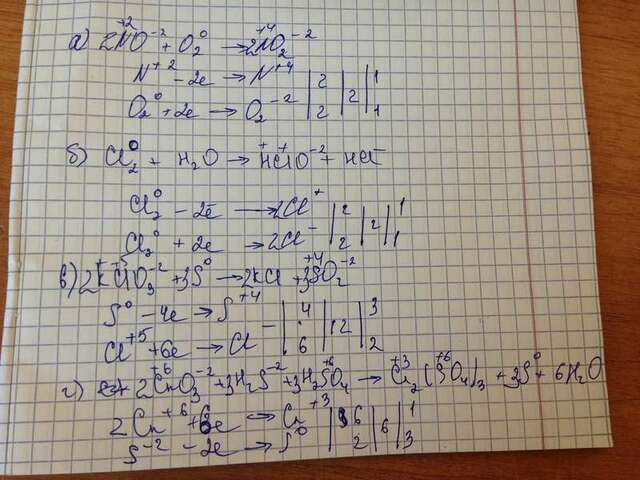 а) 2N⁺²O⁻² + O₂⁰ → 2N⁺⁴O₂⁻²
N⁺² - 2e → N⁺⁴ | 2 | 2 | 1
O₂⁰ + 2e → O₂⁻² | 2 | | 1
б) Cl₂⁰ + H₂O → H⁺Cl⁺O⁻² + HCl⁻
Cl₂⁰ - 2e → 2Cl⁺ | 2 | 2 | 1
Cl₂⁰ + 2e → 2Cl⁻ | 2 | | 1
в) 2K⁺Cl⁺⁵O₃⁻² + 3S⁰ → 2KCl + 3S⁺⁴O₂⁻²
S⁰ - 4e → S⁺⁴ | 4 | 12 | 3
Cl⁺⁵ + 6e → Cl⁻ | 6 | | 2
г) 2Cr⁺⁶O₃⁻² + 3H₂S⁻² + 3H₂S⁺⁶O₄ → Cr₂⁺³(S⁺⁶O₄)₃ + 3S⁰ + 6H₂O
2Cr⁺⁶ + 6e → Cr⁺³ | 6 | 6 | 1
S⁻² - 2e → S⁰ | 2 | | 3